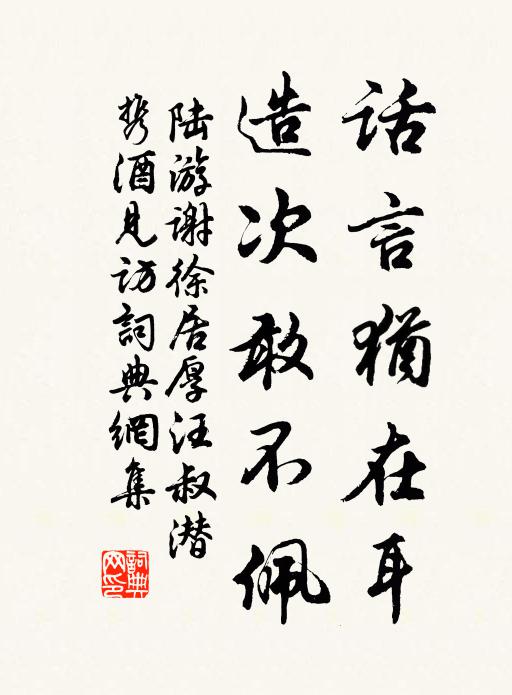 话言猶在耳
造次敢不佩
陆游谢徐居厚汪叔潜
携酒見访詞典網集
詞典网印